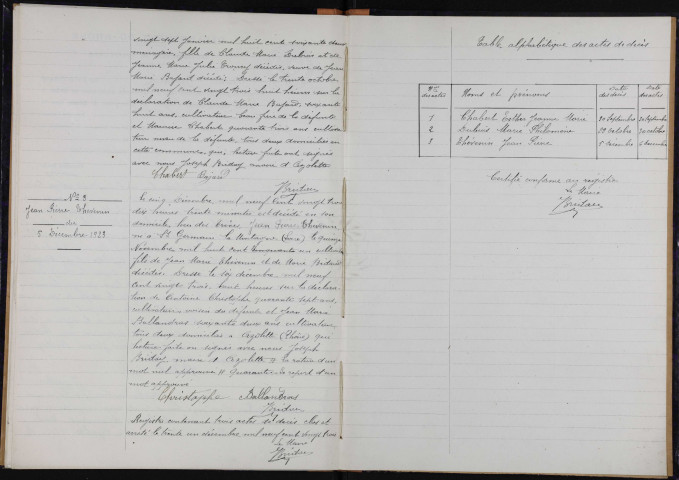 vingt sept janvier mil huit cent soixante deux
ménagère, fille de Claude Marie Dubuis et de
Jeanne Marie Julie décédés, veuve de Jean
Marie Bajard décédé. Dressé le trente octobre
mil neuf cent vingt trois huit heures sur la
déclaration de Claude Marie Bajard, soixante
huit ans, cultivateur, beau frère de la défunte
et Chabert quarante trois ans cultiva
teur de la défunte tous deux domiciliés en
cette commune qui, lecture faite ont signé
avec nous Joseph maire d'Azolette
Chabert Bajard
N° 3
Jean Pierre Thevenin
du
5 Décembre 1923
Le cinq décembre mil neuf cent vingt trois
dix heures trente minutes est décédé en son
domicile, Jean Pierre Thevenin
né à St Germain la Montagne (Loire) le quinze
Novembre mil huit cent cultivateur
fils de Jean Marie Thevenin et de Marie
décédés. Dressé le six décembre mil neuf
cent vingt trois, huit heures sur la déclara
tion de Christophe quarante sept ans,
cultivateur voisin du défunt et Jean Marie
Ballandras soixante deux ans cultivateur
tous deux domiciliés à Azolette (Rhône) qui
lecture faite ont signé avec nous Joseph
maire d'Azolette
mot nul approuvé
mot approuvé
Christophe Ballandras
Registre contenant trois actes de décès clos et
arrêté le trente un décembre mil neuf cent vingt trois
Le Maire
Table alphabétique des actes de décès
Nos des actes Noms et prénoms Date des décès Date des actes
1 Chabert Jeanne Marie 20 Septembre Septembre
2 Dubuis Marie Philomène 29 Octobre 30 octobre
3 Thevenin Jean Pierre 5 décembre 6 décembre
Certifié conforme au registre
Le Maire